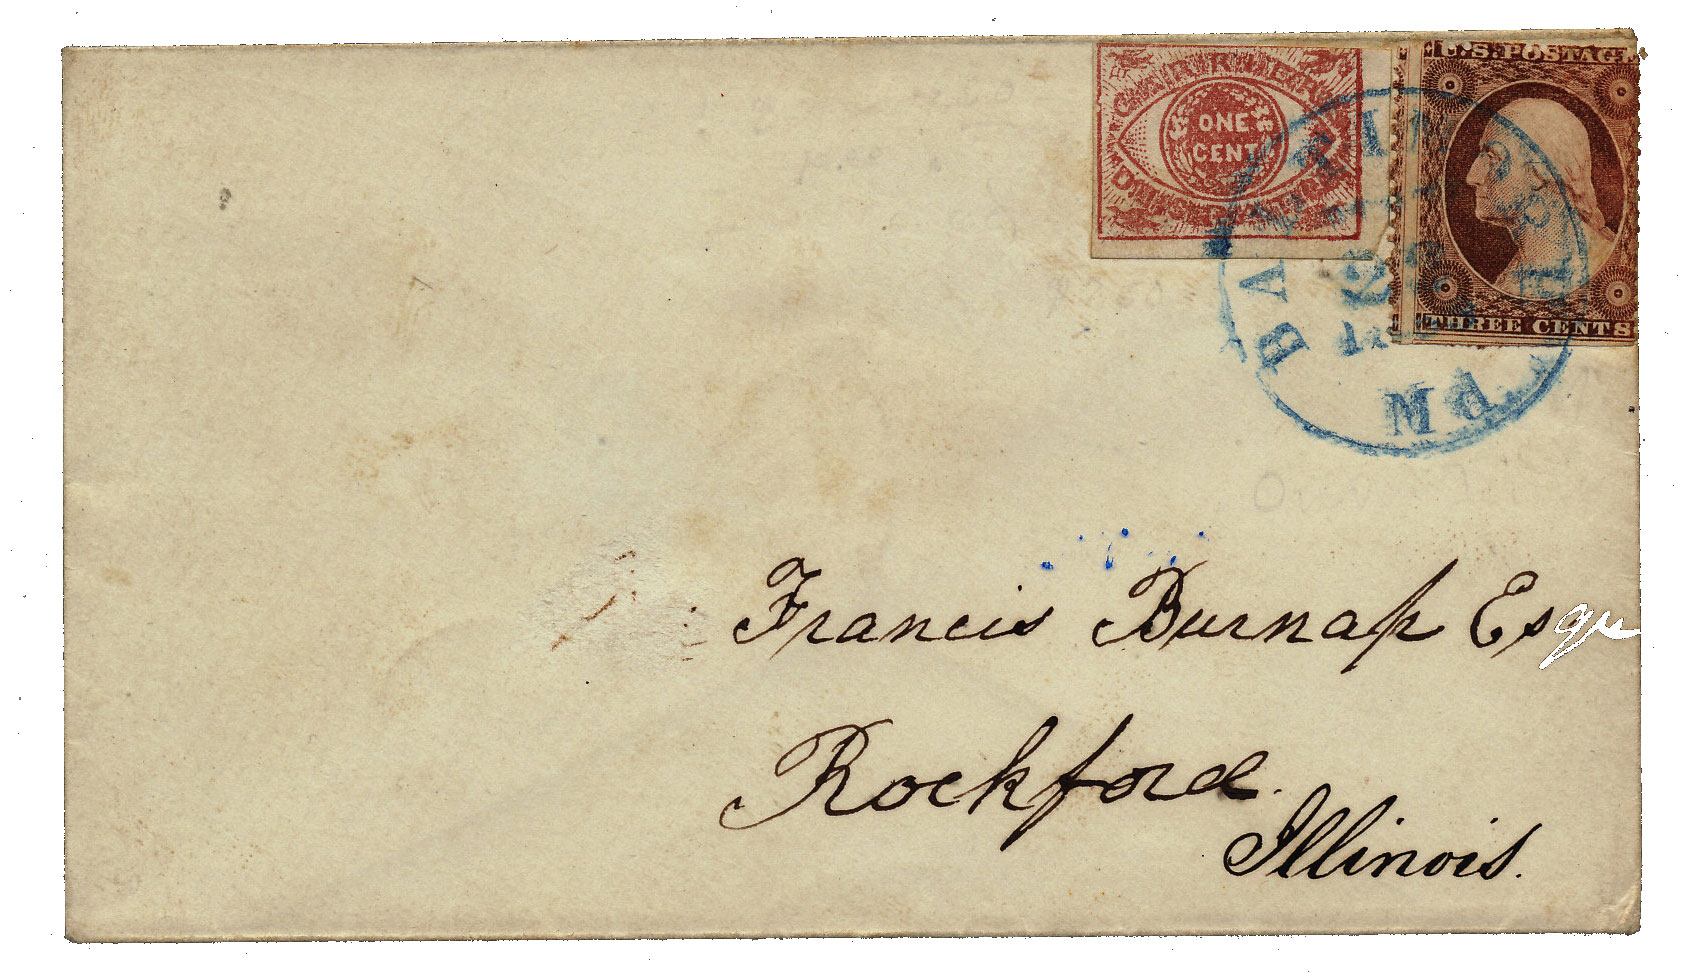 CARRIER'S
ONE
CENT
DISPATCH
U.S. POSTAGE
THREE CENTS
BALTIMORE
Md.
Francis Burnap Esqu
Rockford.
Illinois.